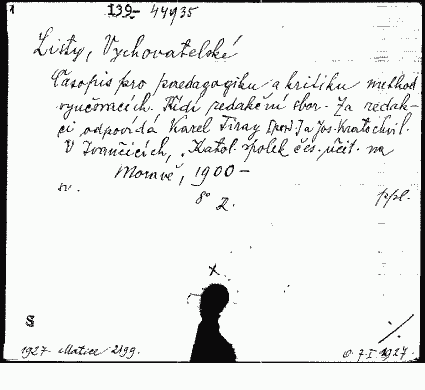 1 I39- 44935
Listy, Vychovatelské
Časopis pro paedagogiku a kritiku method
vyučovacích. Řídí redakční sbor. Za redak-
ci odpovídá Karel Tiray [pow.] a Jos. Kratochvil.
V Ivančicích, "Katol. spolek čes. učit. na
Moravě", 1900-
sv. 8° 2. ppl.
S
1927 Matice 2199. 7.I.1927.